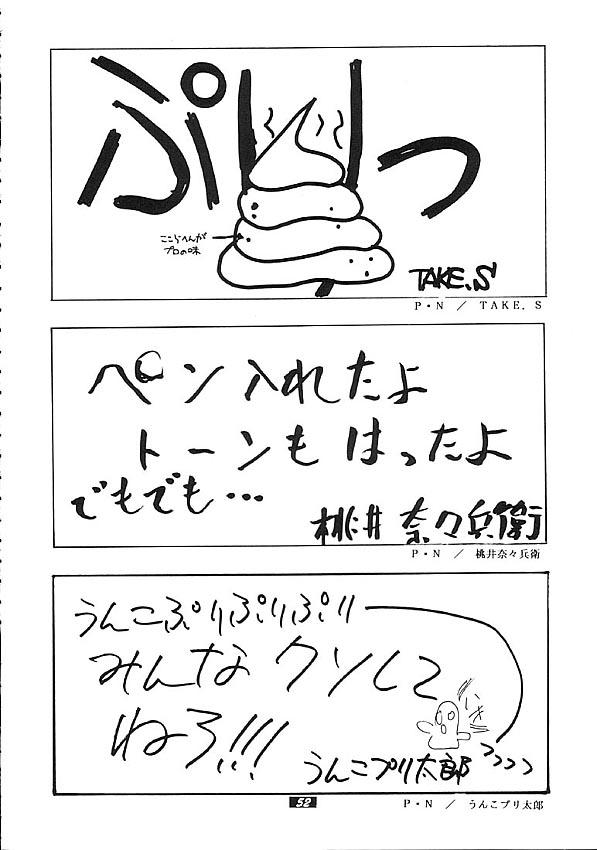 ぷりっ
ここらへんが
プロの味
TAKE.S
P・N ／ TAKE.S
ペン入れたよ
トーンも はったよ
でもでも…
桃井 奈々兵衛
P・N ／ 桃井奈々兵衛
うんこぷりぷりぷり
みんな クソして
ねろ!!!
うんこプリ太郎
52
P・N ／ うんこプリ太郎